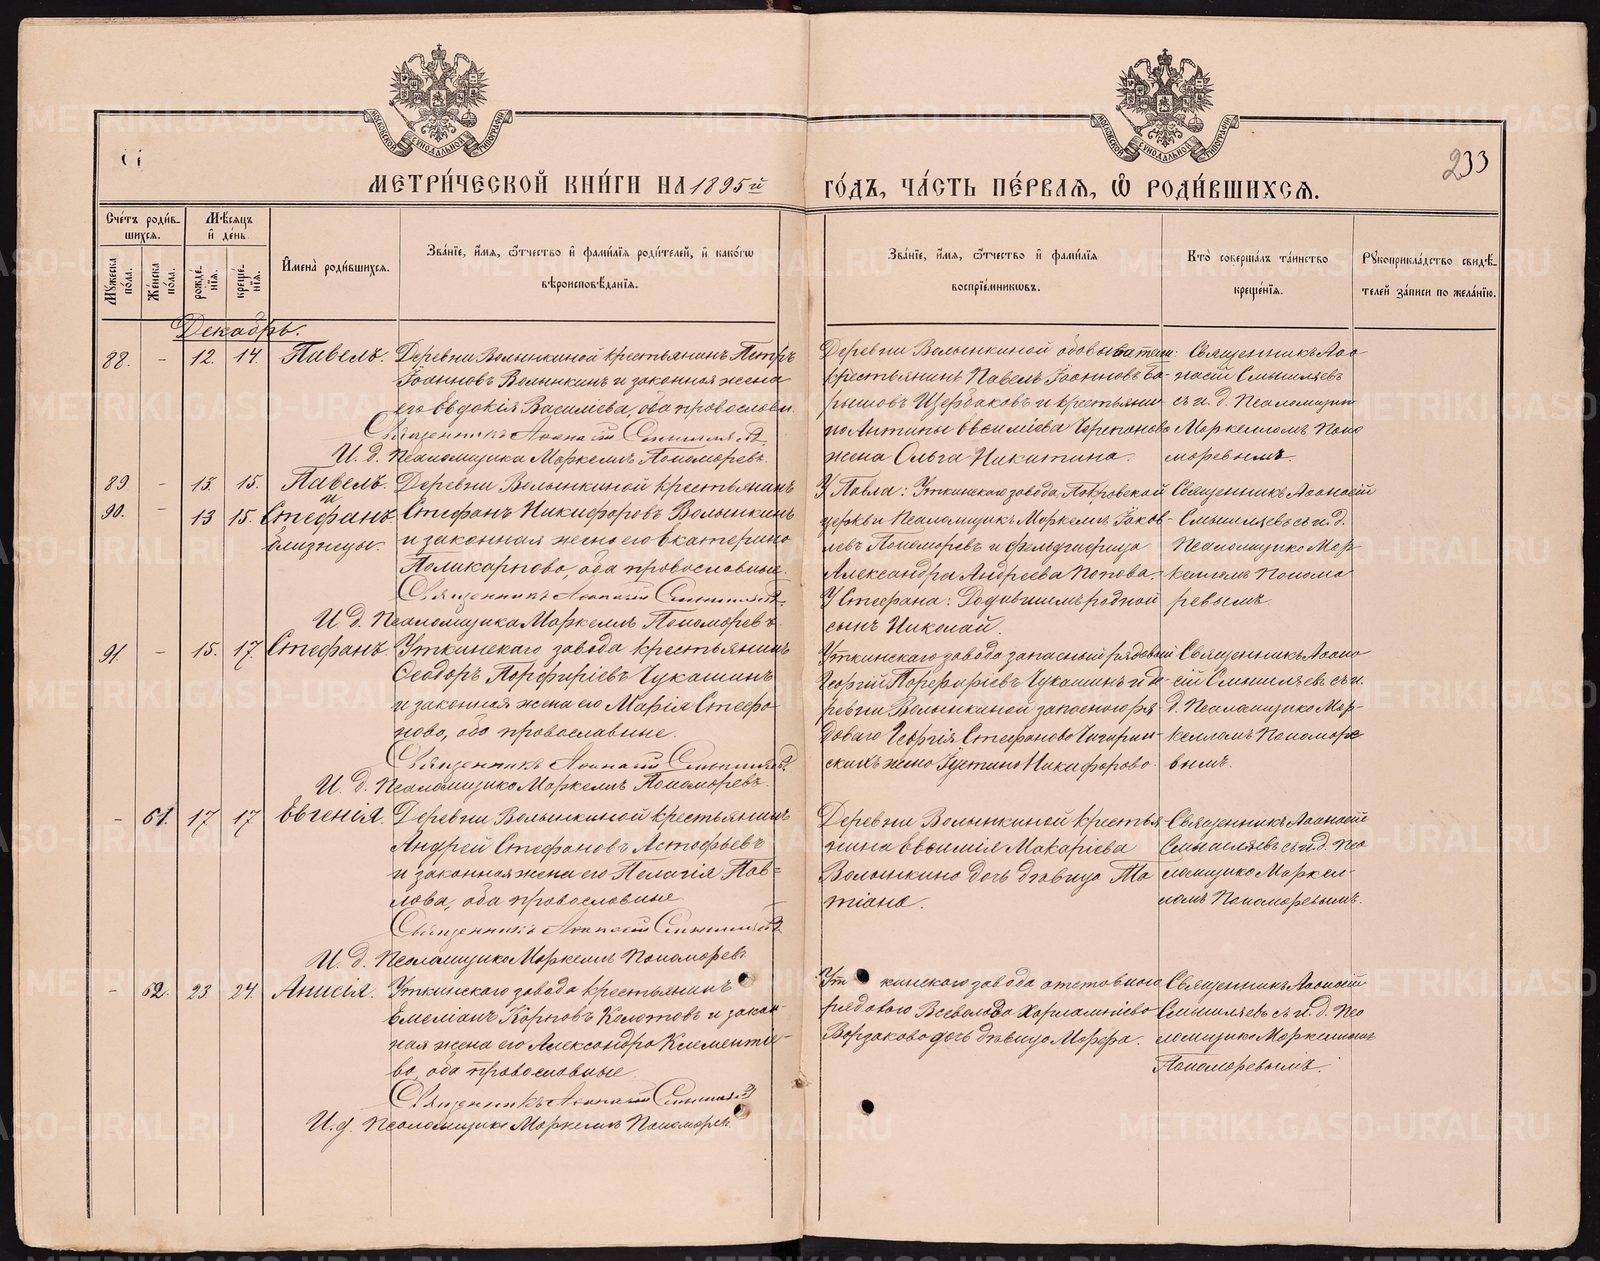 МОСКОВСКОЙ СѴНОДАЛЬНОЙ ТИПОГРАФІИ
МОСКОВСКОЙ СѴНОДАЛЬНОЙ ТИПОГРАФІИ
233
МЕТРИ́ЧЕСКОЙ КНИ́ГИ НА 1895й
ГО́ДЪ, ЧА́СТЬ ПЕ́РВАѦ, Ѿ РОДИ́ВШИХСѦ.
Сче́тъ роди́в-
шихсѧ.
Мѣ́сѧцъ
и҆ де́нь
Мꙋ́жеска по́ла.
Же́нска по́ла.
рожде́нїѧ.
креще́нїѧ.
И҆мена̀ роди́вшихсѧ.
Зва́нїе, и҆́мѧ, ѻ҆́тчество и҆ фами́лїѧ роди́телей, и҆ како́гѡ
вѣроисповѣ́данїѧ.
Зва́нїе, и҆́мѧ, ѻ҆́тчество и҆ фами́лїѧ
воспрїе́мникѡвъ.
Кто̀ соверша́лъ та́инство
креще́нїѧ.
Рꙋкоприкла́дство свидѣ́-
телей за́писи по жела́нїю.
Декабрь.
88. - 12. 14. Павелъ. Деревни Волынкиной крестьянинъ Петръ
Іоанновъ Волынкинъ и законная жена
его Евдокія Василіева, оба православн.
Священникъ Аѳанасій Смышляевъ
И. д. Псаломщика Маркеллъ Пономаревъ.
Деревни Волынкиной
крестьянинъ Павелъ Іоанновъ Ба-
рышовъ Щербаковъ и крестьяни-
жена Ольга Никитина.
Священникъ Аѳа-
насій Смышляевъ
съ и. д. Псаломщик
Маркелломъ Поно
моревымъ.
89 - 13. 15. Павелъ. Деревни Волынкиной крестьянинъ
и
90. - 13 15. Стефанъ Стефанъ Никифоровъ Волынкинъ
близнецы. и законная жена его Екатерина
Поликарпова, оба православные.
Священникъ Аѳанасій Смышляевъ
И. д. Псаломщика Маркеллъ Пономаревъ
У Павла: Уткинскаго завода Покровской
церкви Псаломщикъ Маркеллъ Іаков-
левъ Пономаревъ и фельдшерица
Александра Андреева Попова.
У Стефана: Родившимъ родной
сынъ Николай.
Священникъ Аѳанасій
Смышляевъ съ и. д.
Псаломщика Мар-
келломъ Понома
ревымъ.
91. - 15. 17. Стефанъ. Уткинскаго завода крестьянинъ
Ѳеодоръ Порфиріевъ Чукашинъ
и законная жена его Марія Стефа-
нова, оба православные.
Священникъ Аѳанасій Смышляевъ
И. д. Псаломщика Маркеллъ Пономаревъ.
Уткинскаго завода запасный рядовой
Георгій Порфиріевъ Чукашинъ и де-
ревни Волынкиной запаснаго ря-
доваго Георгія Стефанова
жена Іустина Никифорова.
Священникъ Аѳана
сій Смышляевъ съ и.
д. Псаломщика Мар-
келломъ Пономаре
вымъ.
- 61. 17 17 Евгенія. Деревни Волынкиной крестьянинъ
Андрей Стефановъ Астафьевъ
и законная жена его Пелагія Пав-
лова, оба православные
Священникъ Аѳанасій Смышляевъ
И. д. Псаломщика Маркеллъ Пономарев.
Деревни Волынкиной крестья-
нина Евѳимія Макаріева
Волынкина дочь дѣвица Та
тіана.
Священникъ Аѳанасій
Смышляевъ съ и. д. Пса
ломщика Маркел-
ломъ Пономаревымъ.
- 62. 23 24. Анисія. Уткинскаго завода крестьянинъ
Емеліанъ Карповъ Колотовъ и закон
ная жена его Александра Клементье-
ва, оба православные.
Священникъ Аѳанасій Смышляевъ
И. д. Псаломщика Маркеллъ Пономарев.
Уткинскаго завода отставного
рядового Всеволода Харлампіева
дочь дѣвица Марѳа.
Священникъ Аѳанасій
Смышляевъ съ и. д. Пса
ломщика Маркелломъ
Пономаревымъ.
METRIKI.GASO-URAL.RU